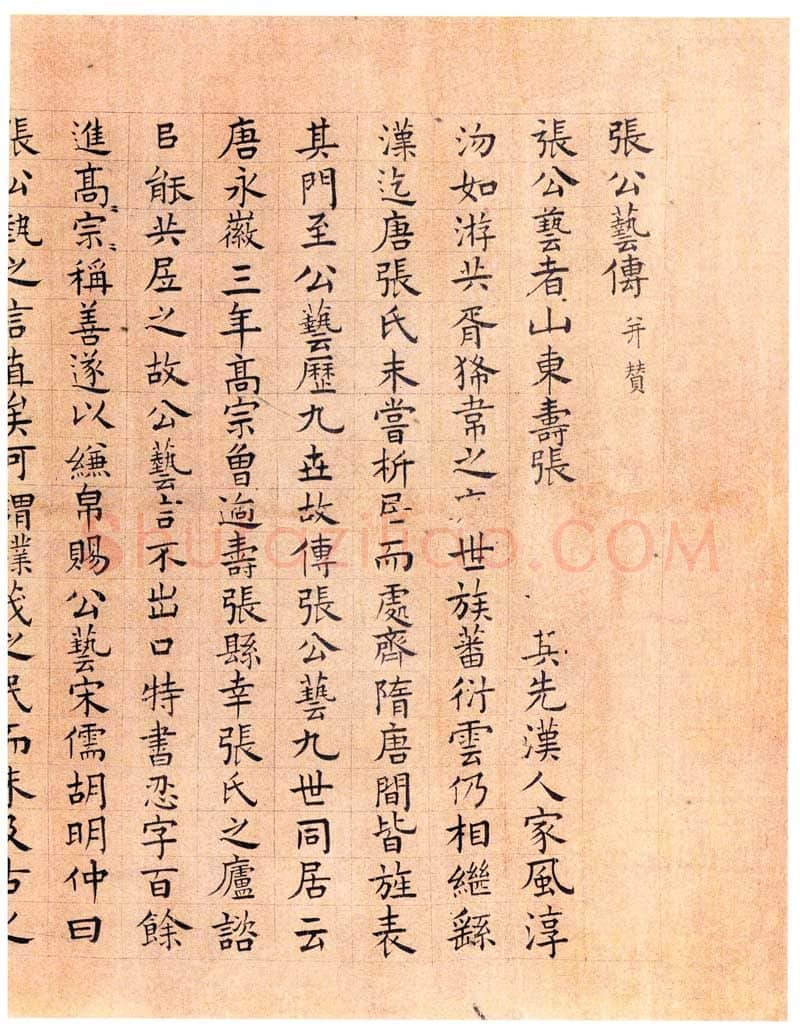 張公藝傳 并贊
張公藝者山東壽張 其先漢人家風淳
沕如游共胥狶韋之 世族蕃衍雲仍相繼繇
漢迄唐張氏未嘗析居而處齊隋唐間皆旌表
其門至公藝歷九世故傳張公藝九世同居云
唐永徽三年髙宗魯過壽張縣幸張氏之廬諮
㠯能共居之故公藝言不出口特書忍字百餘
進髙宗〻稱善遂以縑帛賜公藝宋儒胡明仲曰
張公藝之言直矣可謂業茂之民而未及古之
Shufaziliao.COM